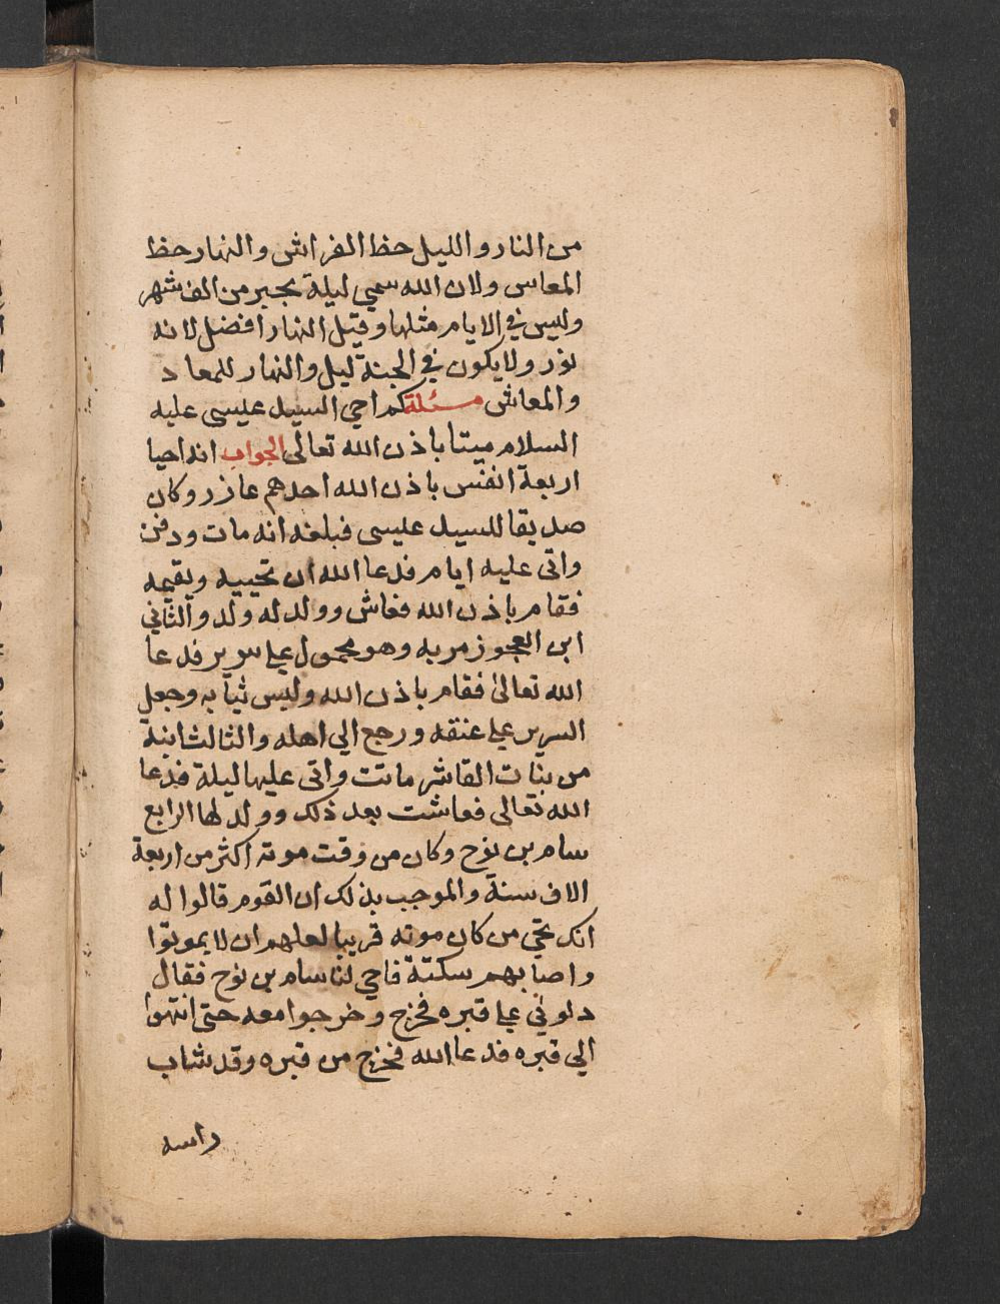 من النار والليل حظ الفراش والنهار حظ
المعاس ولان الله سمي ليلة بخير من الف شهر
وليس في الايام مثلها وقيل النهار افضل لانه
نور ولا يكون في الجنة ليل والنهار للمعاد
والمعاش مسئلة كم احي السيد عليسى عليه
السلام ميتا باذن الله تعالى الجواب انه احيا
اربعة انفس باذن الله احدهم عازر وكان
صديقا للسيد عليسى فبلغه انه مات ودفن
واتى عليه ايام فدعا الله ان تحييه ويقيمه
فقام باذن الله فعاش وولد له ولد والثاني
ابن العجوز مر به وهو محمول على سرير فدعا
الله تعالى فقام باذن الله ولبس ثيابه وجعل
السرير على عنقه ورجع الي اهله والثالث ابنة
من بنات القاشر ماتت واتى عليها ليلة فدعا
الله تعالى فعاشت بعد ذلك وولد لها الرابع
سام بن نوح وكان من وقت موته اكثر من اربعة
الاف سنة والموجب بذلك ان القوم قالوا له
انك تحي من كان موته قريبا لعلهم ان لا يموتوا
واصابهم سكتة فاحي لنا سام بن نوح فقال
دلوني على قبره فخرج وخرجوا معه حتى انتهوا
الي قبره فدعا الله فخرج من قبره وقد شاب
راسه